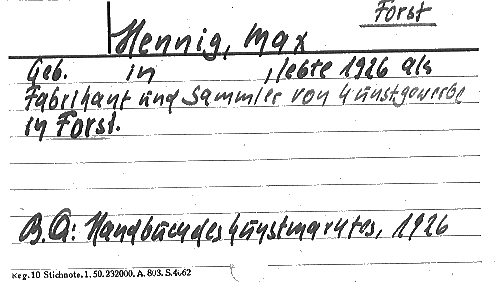 Forst
Hennig, Max
Geb. in , lebte 1926 als
Fabrikant und Sammler von Kunstgewerbe
in Forst.
B.Q.: Handbuch des Kunstmarktes, 1926
Keg. 10 Stichnote. 1. 50. 232000. A. 803. S. 4. 62